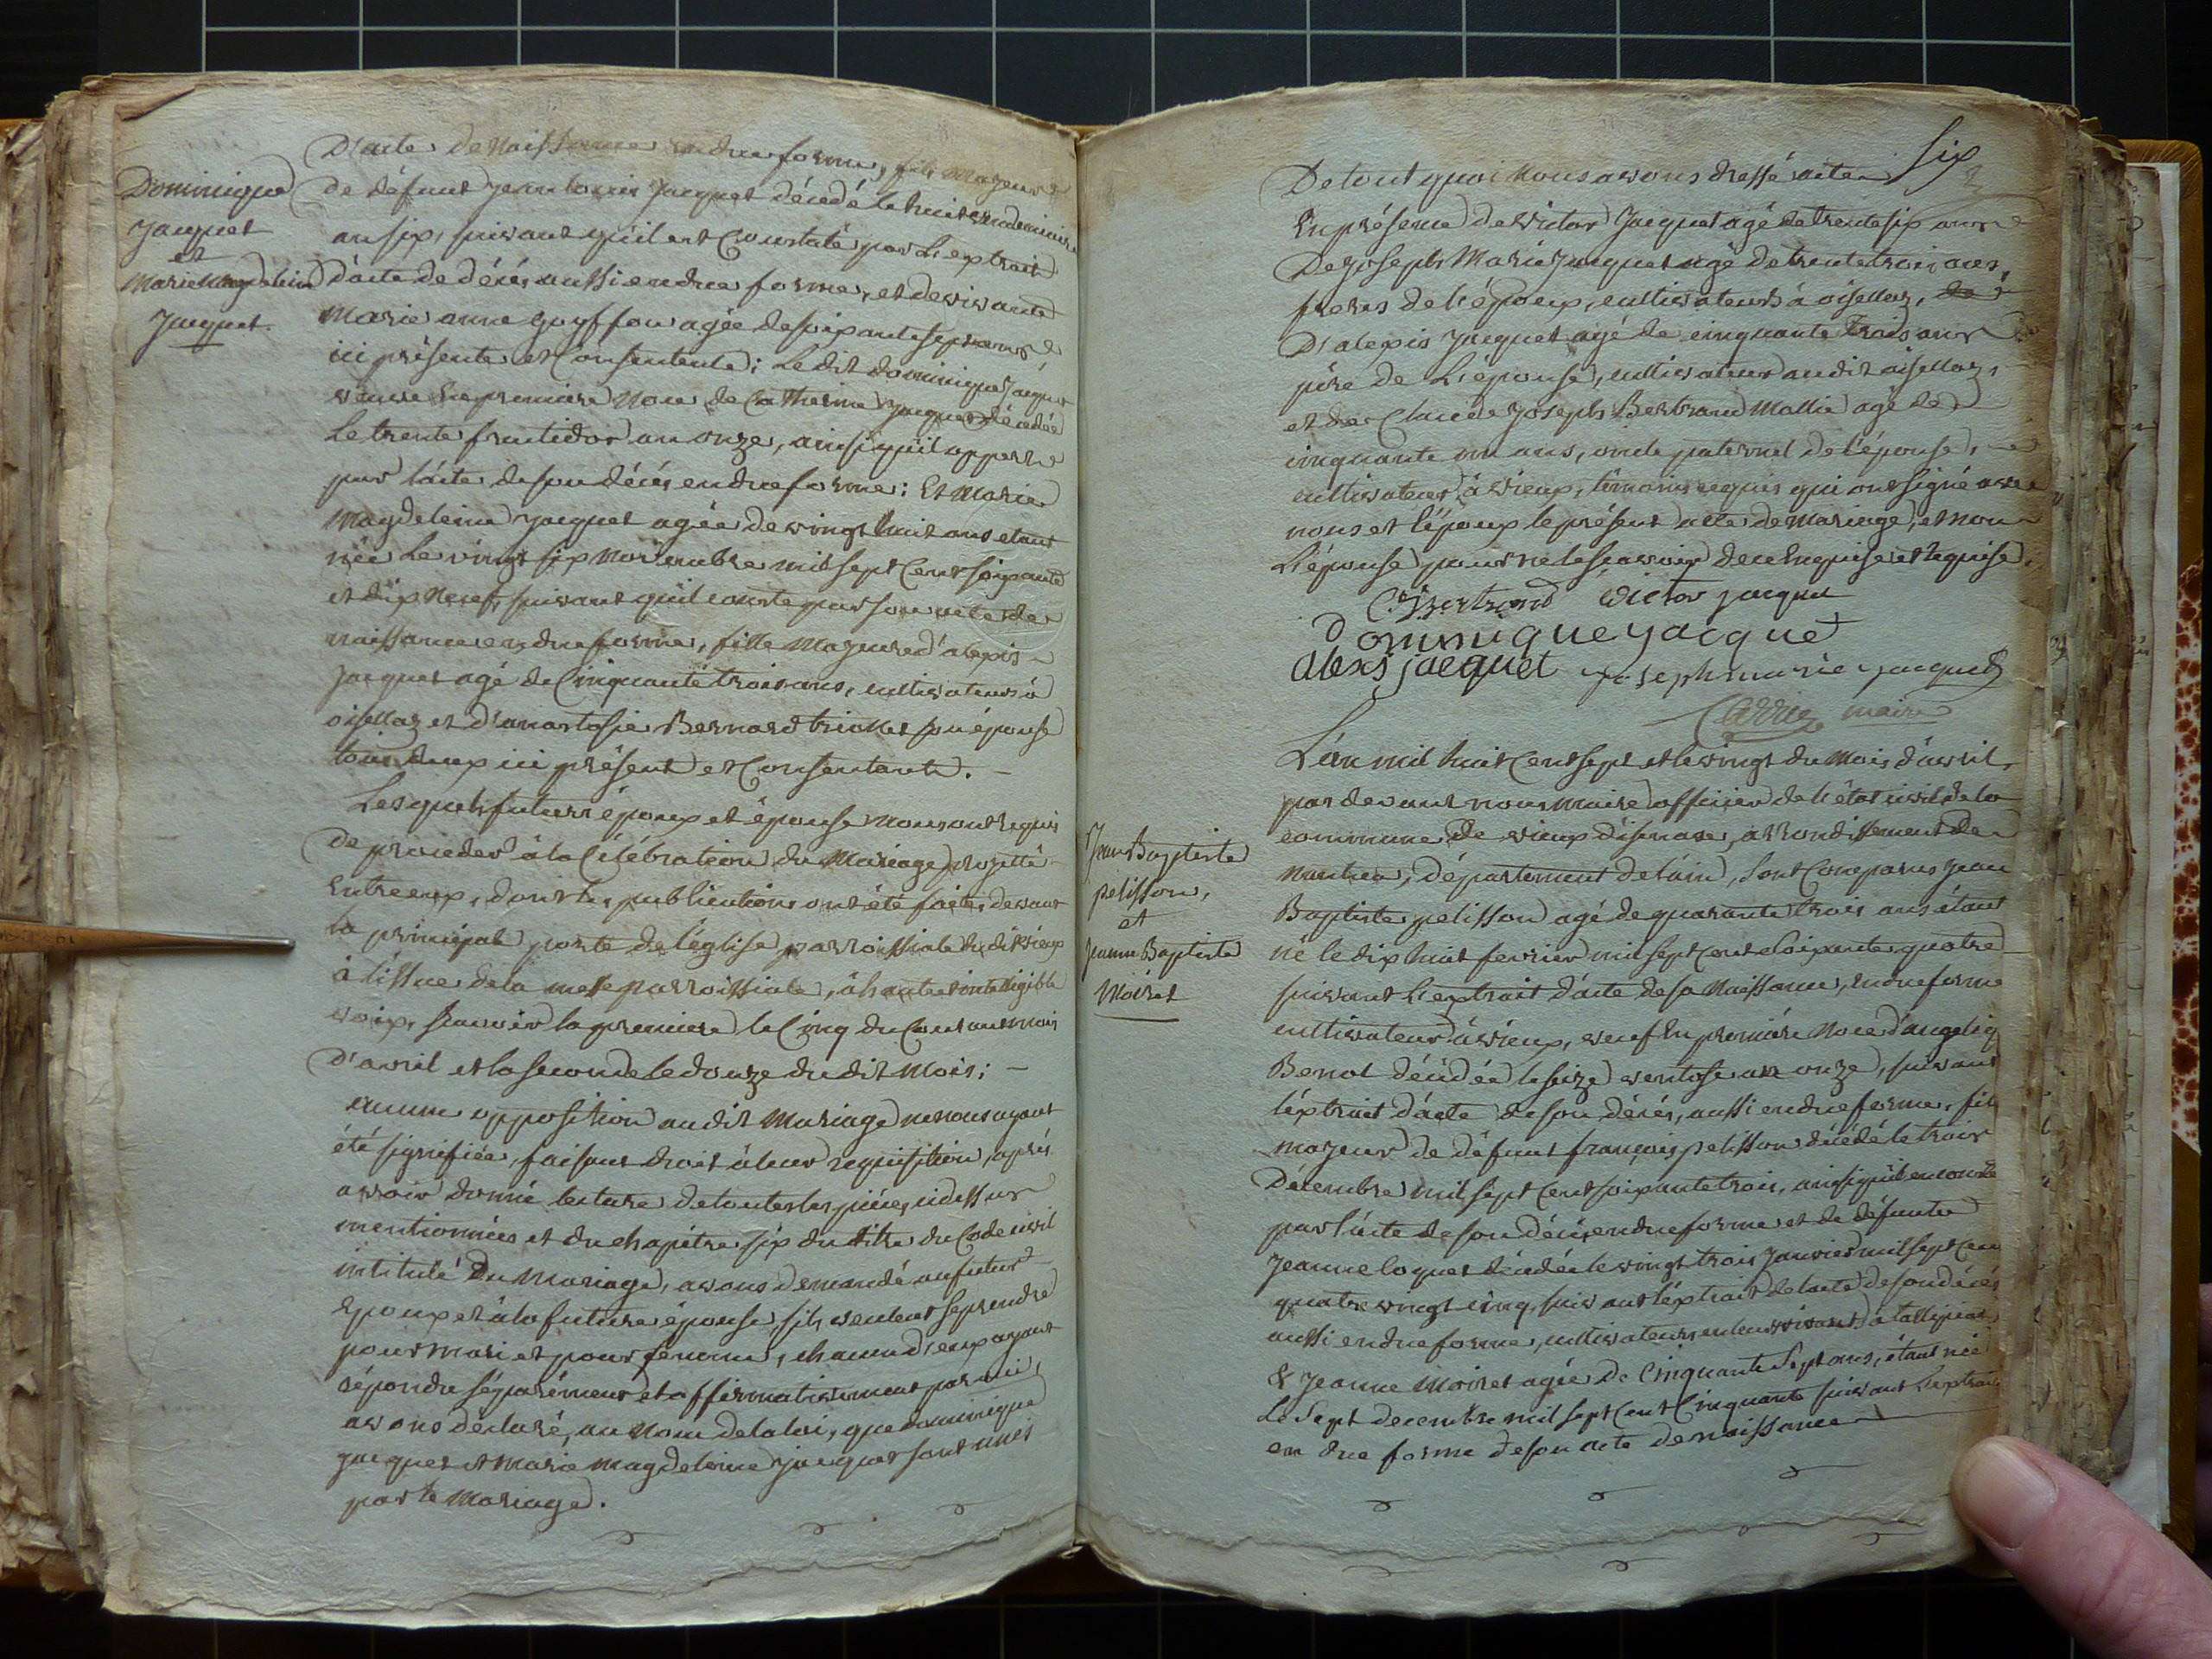 Dominique
Jacquet
et
Marie Magdeleine
Jacquet.
D'acte de Naissance en due forme, fils Majeur
de défunt Jean Louis Jacquet décédé le huit vendemiaire
an six, suivant qu'il est Constaté par L'extrait
d'acte de décés aussi en due forme, et de vivante
Marie anne Guyffon agée de soixante sept ans
ici présente et Consentente; Ledit dominique Jacquet
veuve En premiere Noce de Catherine Jacquet décédée
Le trente fructidor an onze, ainsi qu'il apperre
par l'acte de son décés en due forme; Et Marie
Magdeleine Jacquet agée de vingt huit ans etant
née Le vingt six Novembre mil sept Cent soixante
et dix Neuf, suivant qu'il conste par son acte de
naissance en due forme, fille Majeure d'alexis
Jacquet agé de Cinquante trois ans, cultivateur à
oisellaz et d'anastasie Bernard trinket son épouse
tous deux ici présent et Consentants. –
Lesquels futurs époux et épouse nous ont requis
De procéder à la Célébration du Mariage projetté
Entre eux, dont les publications ont été faites devant
la principale porte de l'église parroissiale dudit vieux
à l'issue de la messe parroissiale, à haute et intelligible
voix, sçavoir la premiere le Cinq du Courant mois
D'avril et la seconde le douze du dit Mois; –
aucune opposition audit Mariage ne nous ayant
été signifiée, faisant droit à leur requisition, après
avoir donné lecture de toutes les pièces cidessus
mentionnées et du chapitre six du titre du Code civil
intitulé Du Mariage, avons demandé au futur
Epoux et à la future épouse s'ils veulent se prendre
pour Mari et pour femme, chacun d'eux ayant
répondu séparément et affirmativement par oui,
avons déclaré, au Nom de la loi, que dominique
Jacquet et Marie Magdeleine Jacquet sont unis
par le Mariage.
six
De tout quoi Nous avons dressé acte
En présence de Victor Jacquet agé de trente six ans
De Joseph Marie Jacquet agé de trente trois ans,
freres de l'époux, cultivateurs à oisellaz, de
D'alexis Jacquet agé de cinquante trois ans
père de L'épouse, cultivateur audit oisellaz,
et de Claude Joseph Bertrand Mallie agé de
cinquante un ans, oncle paternel de l'épouse,
cultivateur à vieux, témoins requis qui ont signé avec
nous et l'époux le présent acte de Mariage, et non
L'épouse pour ne le sçavoir de ce Enquise et requise.
C J Bertrand Victor jacquet
Dominique yacquet
alexs jacquet joseph marie jacquet
maire
L'an mil huit Cent sept et le vingt du Mois d'avril,
par devant nous maire officier de l'état civil de la
commune de vieux d'isenave, arrondissement de
Nantua, département de l'ain, sont Comparus Jean
Baptiste pelisson agé de quarante trois ans étant
né le dix huit fevrier mil sept Cent soixante quatre
suivant L'extrait d'acte de sa Naissance, En due forme
cultivateur à vieux, veuf En premiére Noce d'angeliq
Benot décédée le seize ventose an onze, suivant
l'extrait d'acte de son décés, aussi en due forme, fils
majeur de défunt françois pelisson décédé le trois
Décembre mil sept Cent soixante trois, ainsi qu'il en conste
par l'acte de son décés en due forme et de défunte
Jeanne loquet décédée le vingt trois Janvier mil sept Cen
quatre vingt cinq, suivant l'éxtrait de l'acte de son décés
aussi en due forme, cultivateurs en leur vivant
& Jeanne Moiret agée de Cinquante Sept ans, étant née
Le Sept decembre mil sept Cent Cinquante suivant L'extrait
en due forme de son acte de naissance
Jean Baptiste
pelisson,
et
Jeanne Baptiste
Moiret